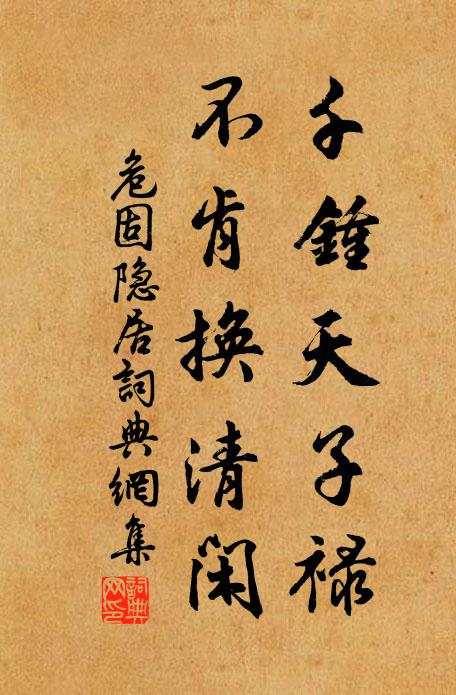 千鍾天子祿
不肯換清閑
危固隐居詞典網集
詞典
网印